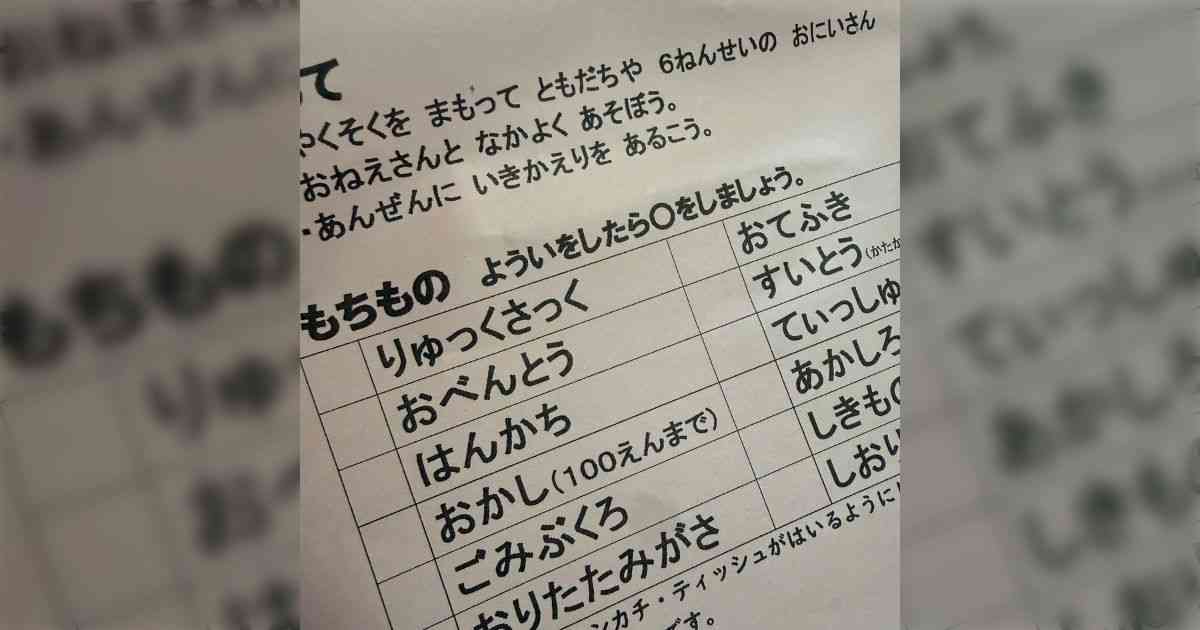 て
やくそくを まもって ともだちや 6ねんせいの おにいさん
おねえさんと なかよく あそぼう。
・あんぜんに いきかえりを あるこう。
もちもの よういをしたら○をしましょう。
りゅっくさっく おてふき
おべんとう すいとう(かたか
はんかち てぃっしゅ
おかし(100えんまで) あかしろ
ごみぶくろ しきもの
おりたたみがさ しおり
ンカチ・ティッシュがはいるように
です。